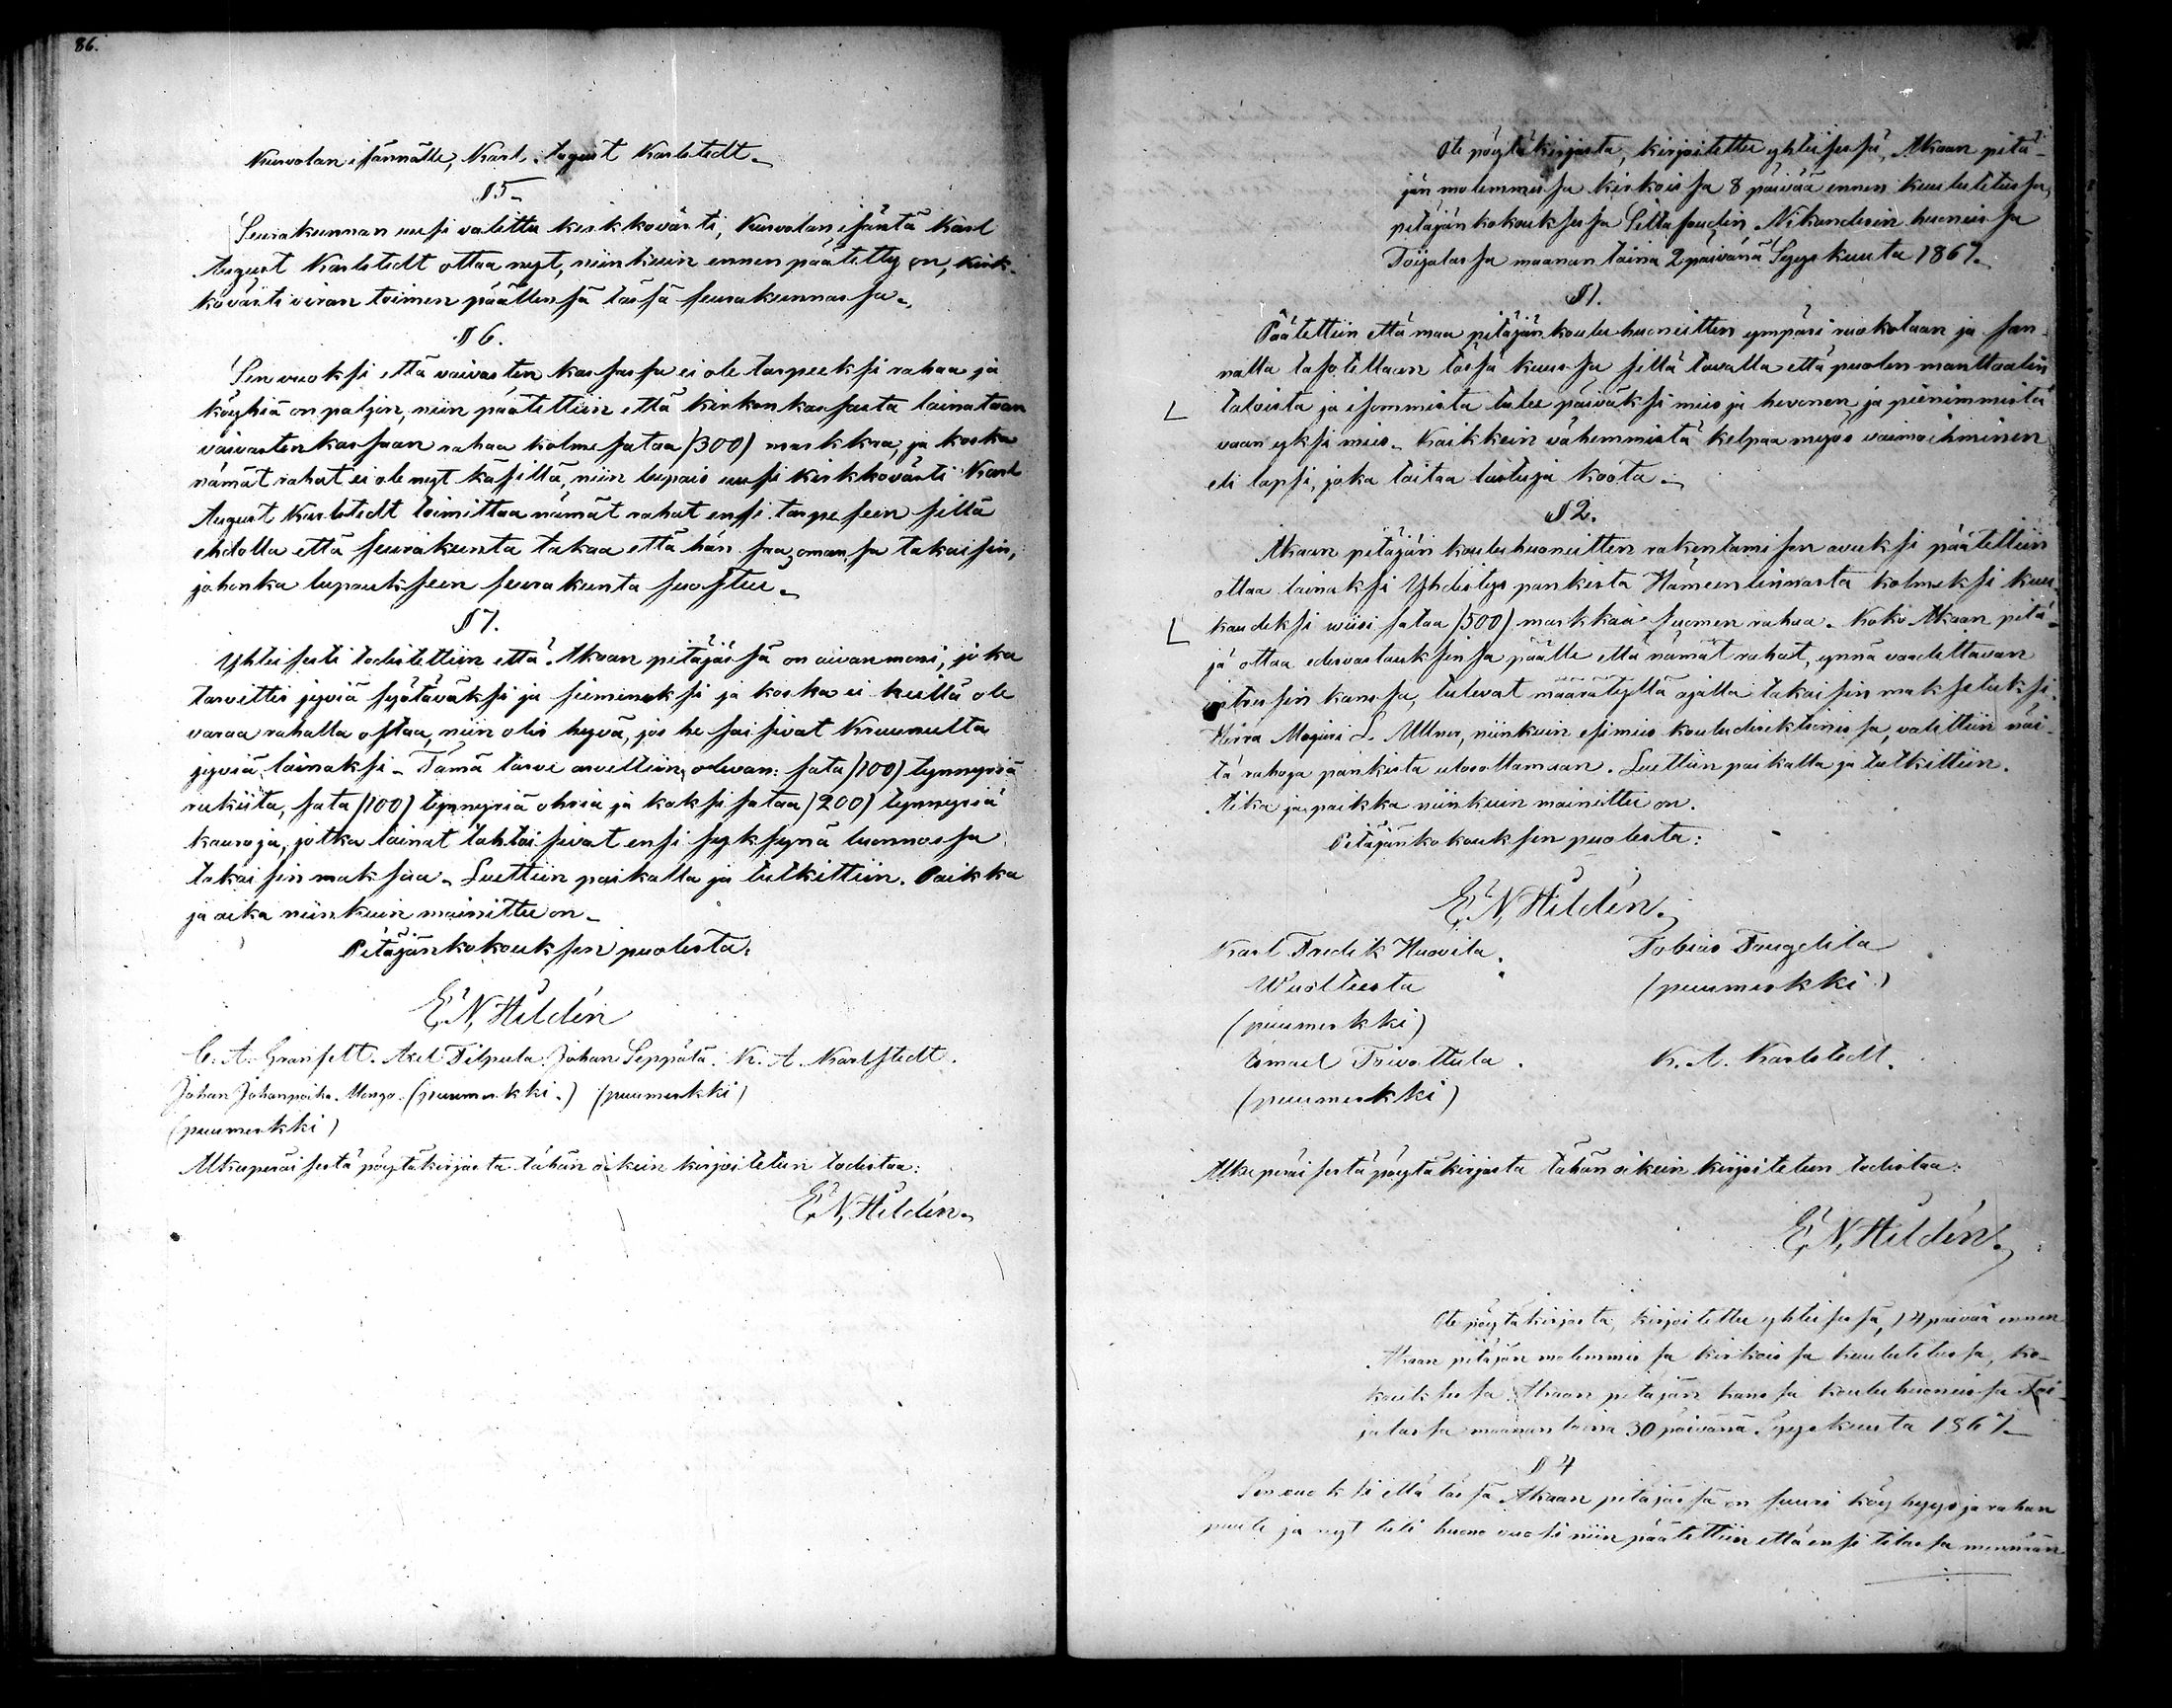 86.
Kurvolan isännälle, Karl August Karlstedt.
§ 5.
Seurakunnan uusi valittu kirkkovärti, Kurvolan isäntä Karl
August Karlstedt ottaa nyt, niinkuin ennen päätetty on, kirk-
kovärti viran toimen päällensä tässä seurakunnassa.
§ 6.
Sen vuoksi että vaivasten kassassa ei ole tarpeeksi rahaa ja
köyhiä on paljon, niin päätettiin että kirkon kassasta lainataan
vaivasten kassaan rahaa kolme sataa /300/ markkaa, ja koska
nämät rahat ei ole nyt käsillä, niin lupais uusi kirkkovärti Karl
August Karlstedt toimittaa nämät rahat ensi tarpeseen sillä
ehdolla että seurakunta takaa että hän saa omansa takaisin,
johonka lupaukseen seurakunta suostuu.
§ 7.
Yhteisesti todistettiin että Akaan pitäjässä on aivan moni, joka
tarvittis jyviä syötäväksi ja siemeneksi ja koska ei heillä ole
varaa rahalla ostaa, niin olis hyvä, jos he saisivat Kruunulta
jyviä lainaksi. Tämä tarve arveltiin olevan: sata /100/ tynnyriä
rukiita, sata /100/ tynnyriä ohria ja kaksi sataa /200/ tynnyriä
kauroja, jotka lainat tahtoisivat ensi syksynä luonnossa
takaisin maksaa. Luettiin paikalla ja tutkittiin. Paikka
ja aika niinkuin mainittu on.
Pitäjänkokouksen puolesta:
E. N. Hildén
C. A. Granfelt. Axel Tilpula. Johan Seppälä. K. A. Karlstedt.
Johan Johanpoika. (puumerkki.) (puumerkki)
(puumerkki)
Alkuperäisestä pöytäkirjasta tähän oikein kirjoitetun todistaa:
E. N. Hildén.
Ote pöytäkirjasta, kirjoitettu yhteisessä, Akaan pitä-
jän molemmissa kirkoissa 8 päivää ennen kuulutetussa,
pitäjänkokouksessa Siltafoudin Nikanderin huoneissa
Toijalassa maanantaina 2 päivänä Syyskuuta 1867.
§ 1.
Päätettiin että maa pitäjän kouluhuoneitten ympäri ruokotaan ja san-
nalla tasotellaan tässä kuussa sillä tavalla että puolen manttaalin
taloista ja isommista tulee päiväksi mies ja hevonen ja pienimmistä
vaan yksi mies. Kaikkein vähemmistä kelpaa myös vaimoihminen
eli lapsi, joka taitaa lastuja koota.
§ 2.
Akaan pitäjän kouluhuoneitten rakentamisen avuksi päätettiin
ottaa lainaksi Yhdistys pankista Hämeenlinnasta kolmeksi kuu-
kaudeksi wiisi sataa /500/ markkaa Suomen rahaa. Koko Akaan pitä-
jä ottaa edesvastauksensa päälle että nämät rahat, ynnä vaadittavan
intressin kanssa, tulevat määrätyllä ajalla takaisin maksetuksi.
Herra L. niinkuin esimies kouludirektionissa, valittiin näi-
tä rahoja pankista ulosottamaan. Luettiin paikalla ja tutkittiin.
Aika ja paikka niinkuin mainittu on.
Pitäjänkokouksen puolesta:
E. N. Hildén.
Karl Fredrik Huovila. Tobias
(puumerkki)
(puumerkki)
K. A. Karlstedt.
(puumerkki)
Alkuperäisestä pöytäkirjasta tähän oikein kirjoitetun todistaa:
E. N. Hildén.
Ote pöytäkirjasta, kirjoitettu yhteisessä, 14 päivää ennen
Akaan pitäjän molemmissa kirkoissa kuulutetussa, ko-
kouksessa Akaan pitäjän kanssa kouluhuoneissa Toi-
jalassa maanantaina 30 päivänä Syyskuuta 1867.
§ 4
Sen vuoksi että tässä Akaan pitäjässä on suuri köyhyys ja rahan
puute ja nyt tuli huono vuosi niin päätettiin että ensi tilassa mennään